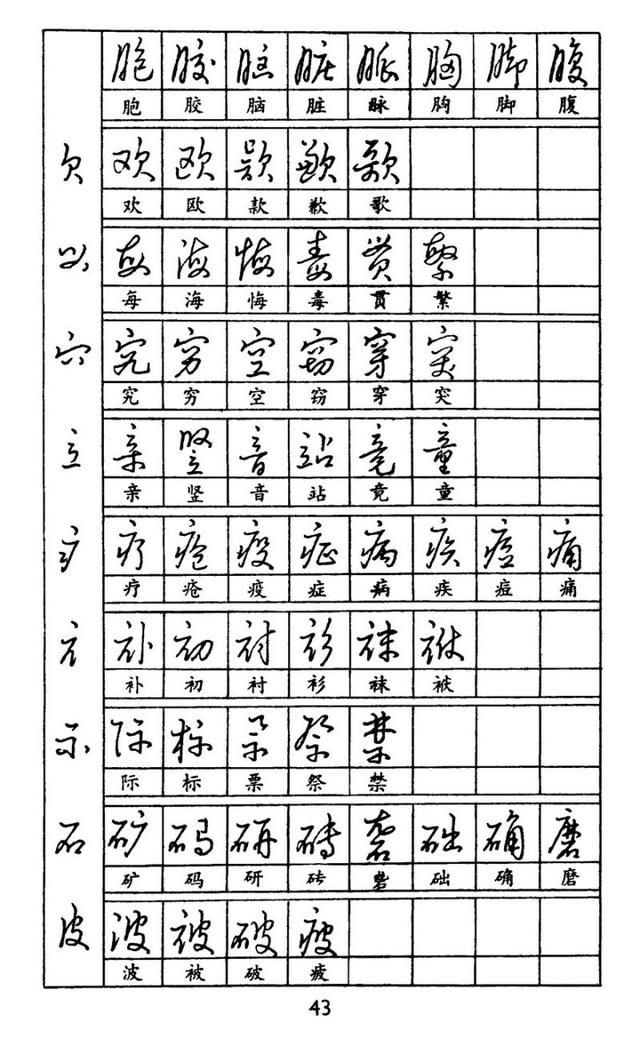 胞 胶 脑 脏 脉 胸 脚 腹
胞 胶 脑 脏 脉 胸 脚 腹
欠 欢 欧 款 歉 歌
欢 欧 款 歉 歌
每 海 悔 毒 贯 繁
每 海 悔 毒 贯 繁
穴 究 穷 空 窃 穿 突
究 穷 空 窃 穿 突
立 亲 竖 音 站 竟 童
亲 竖 音 站 竟 童
疒 疗 疮 疫 症 病 疾 痘 痛
疗 疮 疫 症 病 疾 痘 痛
衤 补 初 衬 衫 袜 袱
补 初 衬 衫 袜 袱
示 际 标 票 祭 禁
际 标 票 祭 禁
石 矿 码 研 砖 础 确 磨
矿 码 研 砖 础 确 磨
皮 波 被 破 疲
波 被 破 疲
43